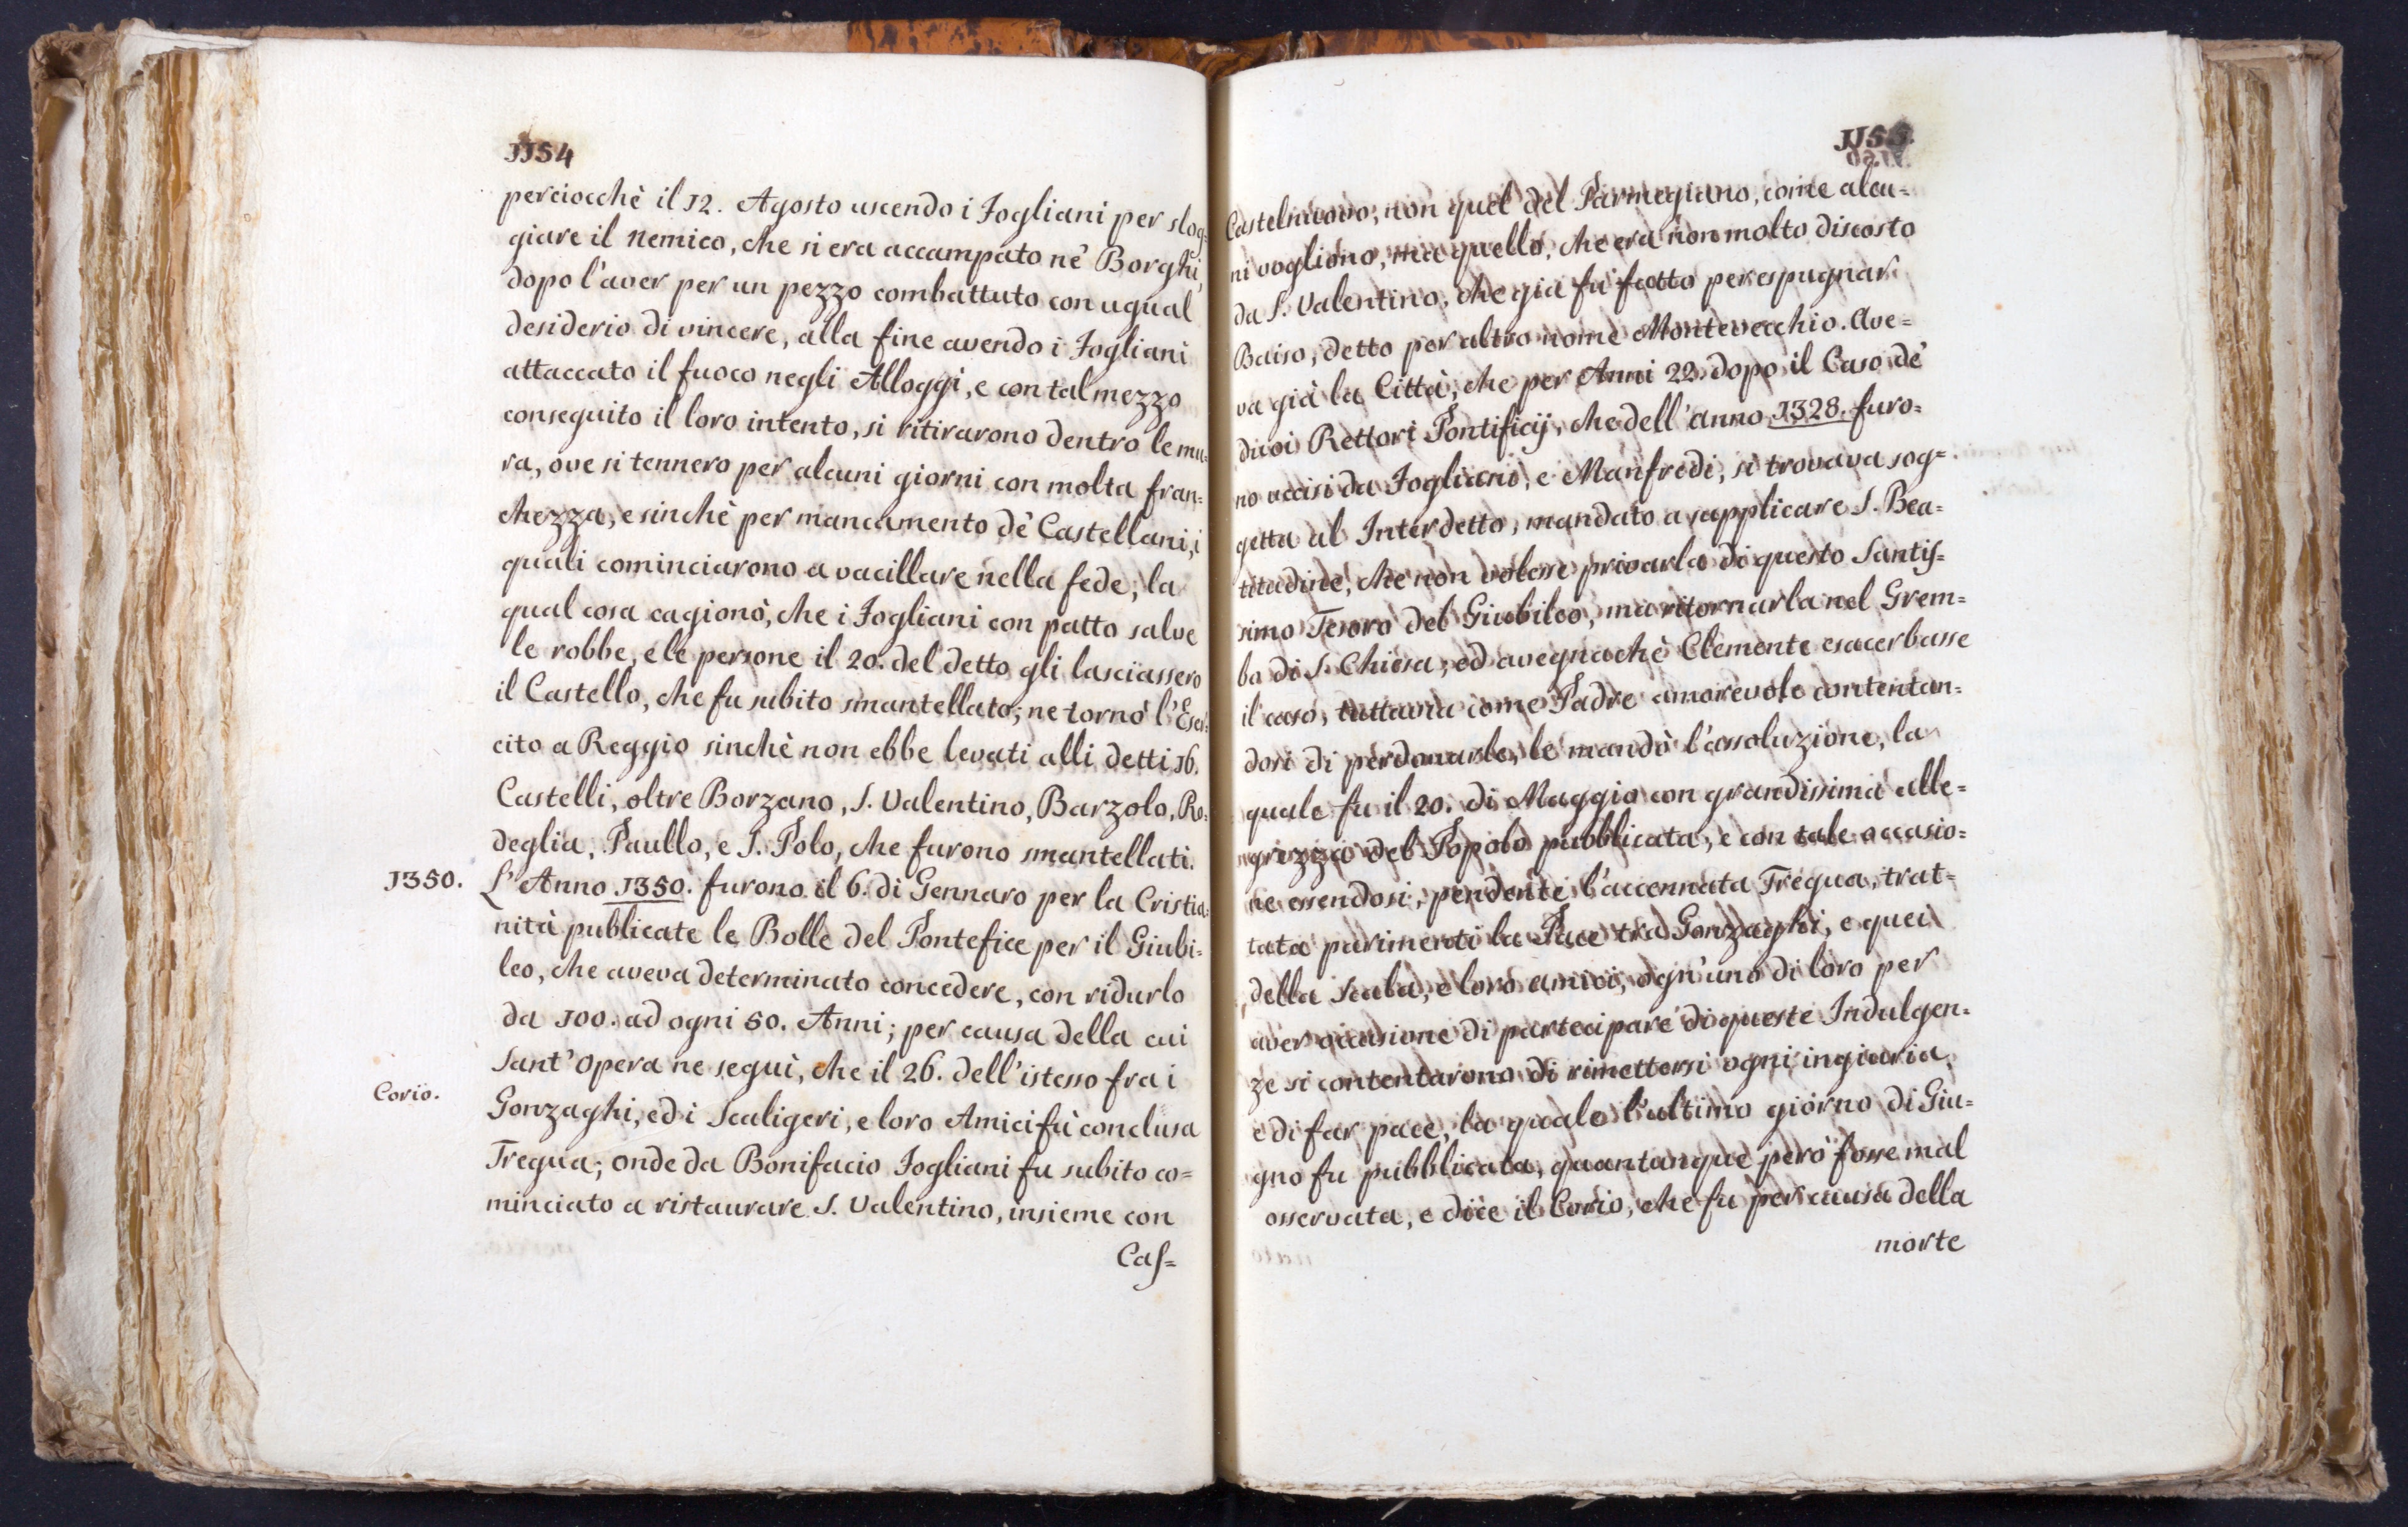 1154
perciocchè il 12. Agosto uscendo i Fogliani per slog=
giare il nemico, che si era accampato ne' Borghi,
dopo l'aver per un pezzo combattuto con ugual
desiderio di vincere, alla fine avendo i Fogliani
attaccato il fuoco negli Alloggi, e con tal mezzo
conseguito il loro intento, si ritirarono dentro le mu=
ra, ove si tennero per alcuni giorni con molta fran=
chezza, e sinchè per mancamento de' Castellani, i
quali cominciarono a vacillare nella fede; la
qual cosa cagionò, che i Fogliani con patto salve
le robbe, e le persone il 20. del detto gli lasciassero
il Castello, che fu subito smantellato; ne tornò l'Eser=
cito a Reggio sinchè non ebbe levati alli detti 16.
Castelli, oltre Borzano, S. Valentino, Barzolo, Ro=
deglia, Paullo, e S. Polo, che furono smantellati.
1350. L'Anno 1350. furono il 6. di Gennaro per la Cristia=
nità publicate le Bolle del Pontefice per il Giubi=
leo, che aveva determinato concedere, con ridurlo
da 100. ad ogni 50. Anni; per causa della cui
Sant'Opera ne seguì, che il 26. dell'istesso fra i
Corio.
Gonzaghi, ed i Scaligeri, e loro Amici fù conclusa
Tregua; onde da Bonifacio Fogliani fu subito co=
minciato a ristaurare S. Valentino, insieme con
Cas=
1155.
Castelnuovo; non quel del Parmegiano, come alcu=
ni vogliono, ma quello, che era non molto discosto
da S. Valentino, che già fu fatto per espugnar
Baiso, detto per altro nome Montevecchio. Ave=
va già la Città, che per Anni 22. dopo il Caso de'
duoi Rettori Pontificij, che dell'anno 1328. furo=
no uccisi da Fogliani, e Manfredi, si trovava sog=
getta al Interdetto, mandato a supplicare S. Bea=
titudine, che non volesse privarla di questo Santis=
simo Tesoro del Giubileo, ma ritornarla nel Grem=
bo di S. Chiesa; ed avegnachè Clemente esacerbasse
il caso, tuttavia come Padre amorevole contentan=
dosi di perdonarle, le mandò l'assoluzione, la
quale fu il 20. di Maggio con grandissima alle=
grezza del Popolo pubblicata, e con tale occasio=
ne essendosi, pendente l'accennata Tregua, trat=
tata parimenti la Pace tra Gonzaghi, e quei
della Scala, e loro amici, ogn'uno di loro per
aver occasione di partecipare di queste Indulgen=
ze si contentarono di rimettersi ogni ingiuria,
e di far pace, la quale l'ultimo giorno di Giu=
gno fu pubblicata, quantunque però fosse mal
osservata, e dice il Corio, che fu per causa della
morte